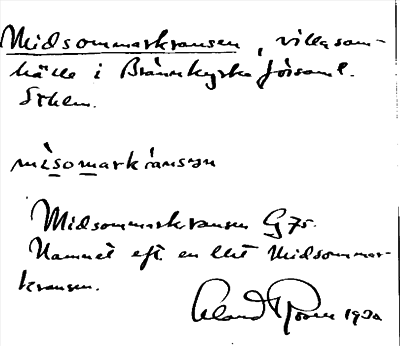 Midsommarkransen, villasam-
hälle i Brännkyrka församl.
Sthlm.
misomarkransən
Midsommarkransen G 75.
Namnet eft. en lht Midsommar-
kransen.
1930